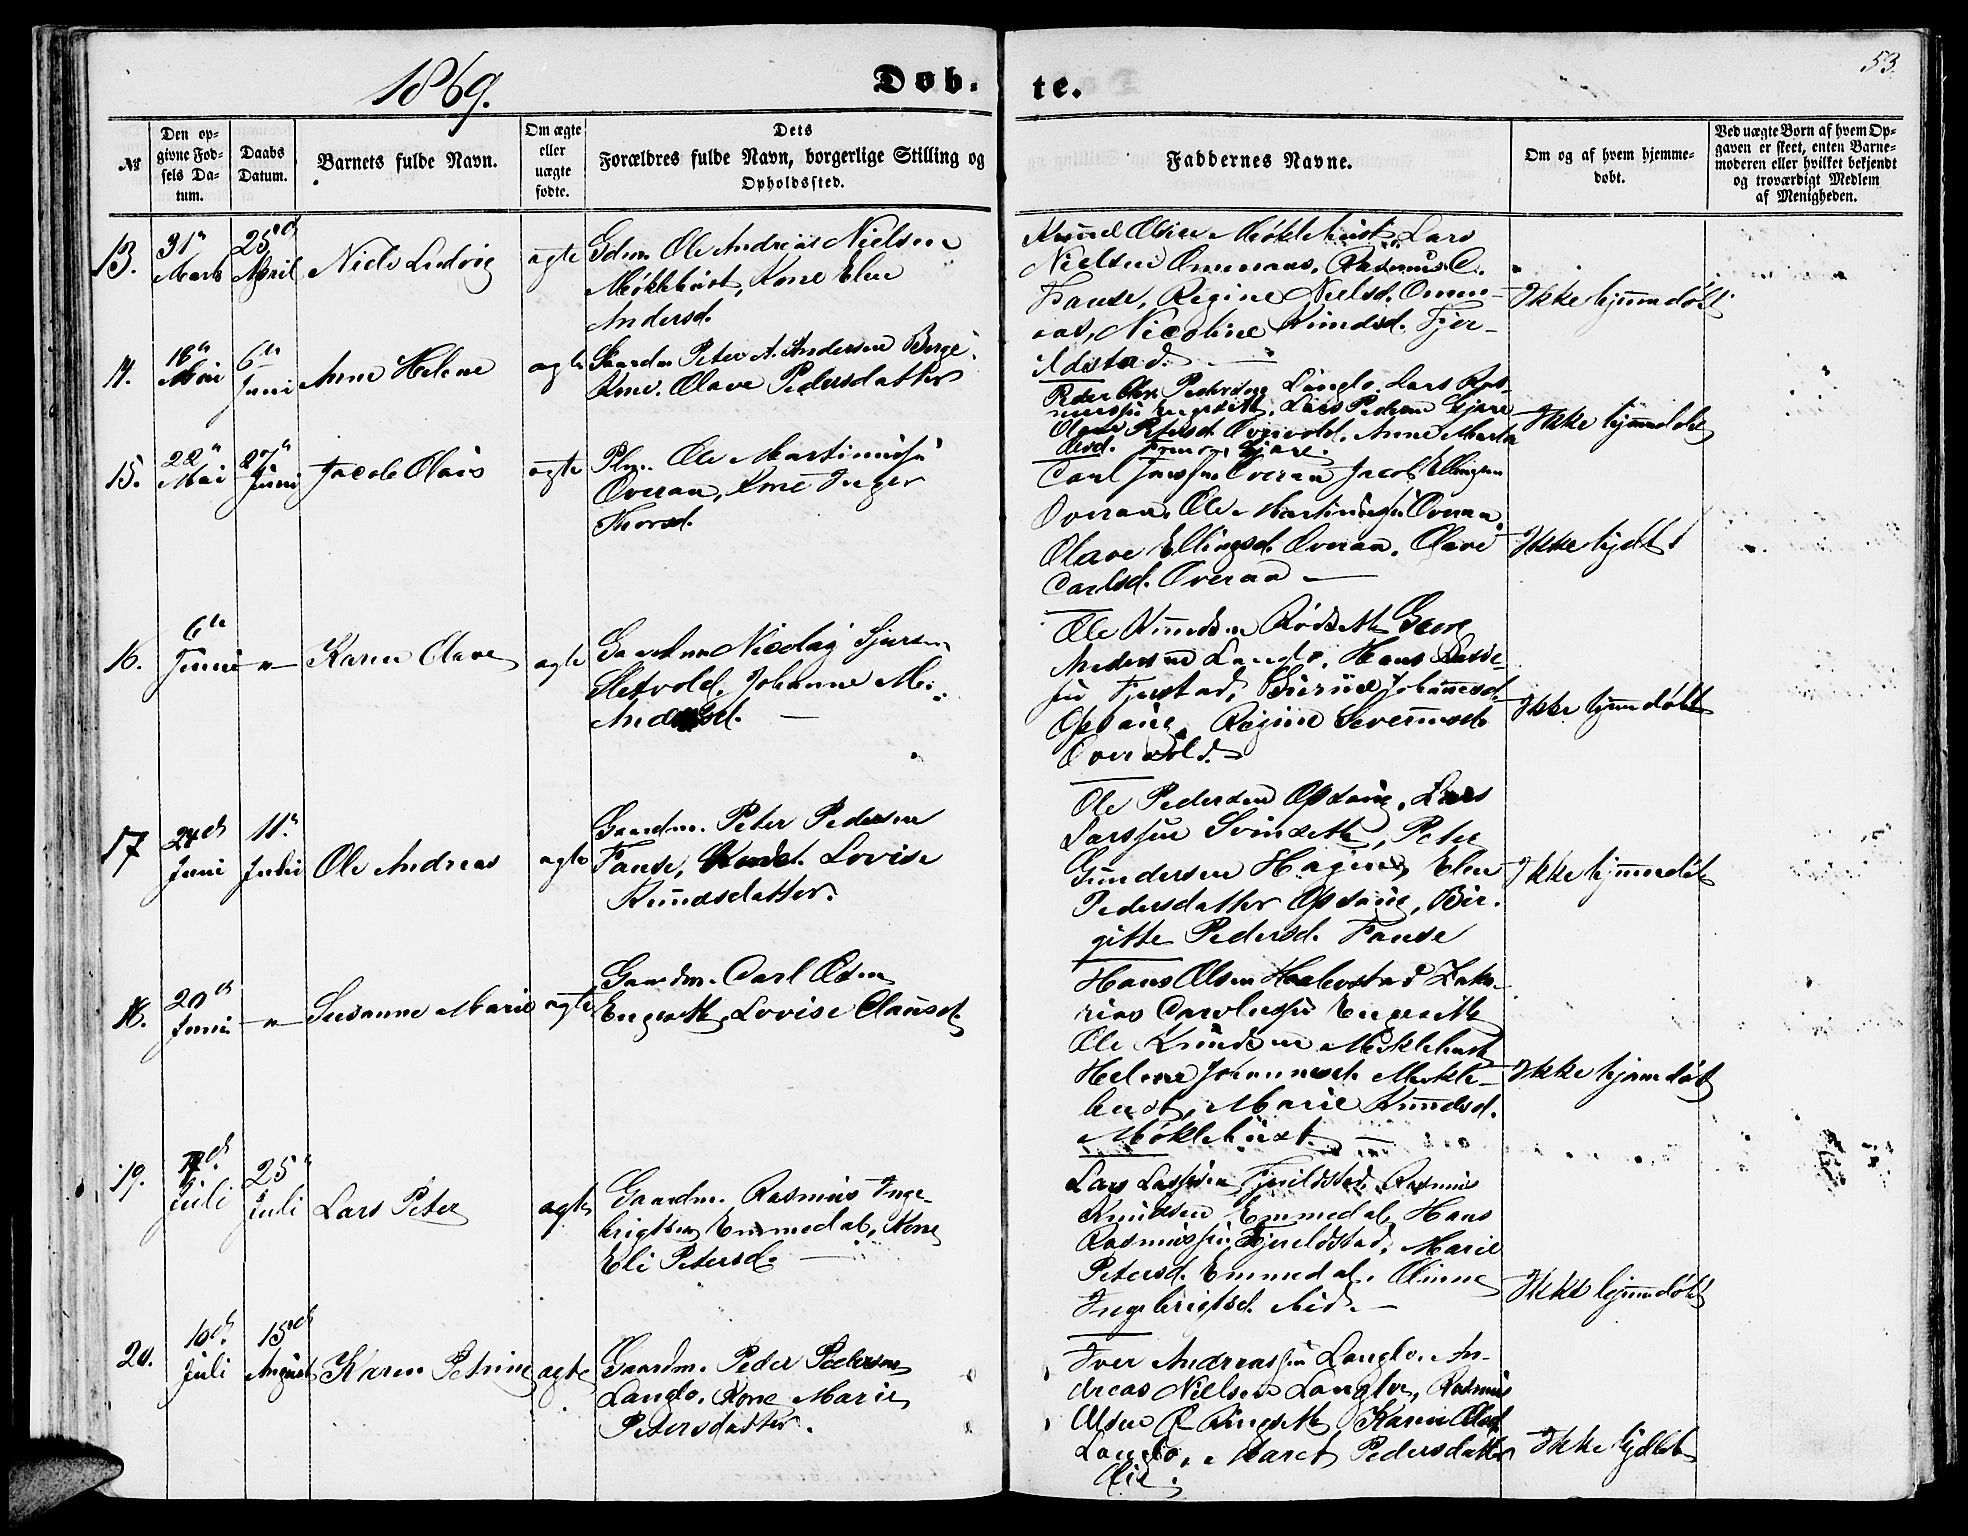 1869.
Døb-
te.
53.
№
Den op-
givne Fød-
sels Da-
tum.
Daabs
Datum.
Barnets fulde Navn.
Om ægte
eller
uægte
fødte.
Dets
Forældres fulde Navn, borgerlige Stilling og
Opholdssted.
Faddernes Navne.
Om og af hvem hjemme-
døbt.
Ved uægte Børn af hvem Op-
gaven er skeet, enten Barne-
moderen eller hvilket bekjendt
og troværdigt Medlem
af Menigheden.
13.
31te
Marts
25de
April
Niels Ludvig
ægte
Gdm. Ole Andreas Nielsen
Møklebust, Kone Elen
Andersd.
Knud Olsen Møklebust, Lars
Nielsen Ommenaas, Rasmus O.
Fause, Regine Nielsd. Omme-
aas, Nicoline Knudsd. Fjør-
ildstad.
Ikke hjemmedøbt
14.
18de
Mai
6te
Juni
Anne Helene
ægte
Gaardm Peter A. Andersen Berge
Kone. Olave Pedersdatter
Peder Chr. Pedersen Langlo, Lars Ras-
mussen Engesæth, Lars Pedersen Gjære
Olave Petersd. Overvold, Anne Marta
Olsd. Gjære.
Ikke hjemmedøbt
15.
22de
Mai
27de
Juni
Jacob Olais
ægte
Plm. Ole Martinussen
Overaa, Kone Inger
Thorsd.
Carl Jonssen Overaa Jacob Ellingsen
Overaa, Ole Martinussen Overaa,
Olave Ellingsd. Overaa, Olave
Carlsd. Overaa —
Ikke hjdbt
16.
6te
Juni
—"—
Karen Olave
ægte
Gaardm Nicolai Sjursen
Sletvold, Johanne M.
Andersd. —
Ole Knudsen Rødseth
Andersen Langlo, Hans Lasse-
sen Fjørstad, Johannesd.
Opsaug, Regine Severinsd.
Overvold. —
Ikke hjemmedøbt
17
24de
Juni
11te
Juli
Ole Andreas
ægte
Gaardm. Peter Pedersen
Fause, Lovise
Knudsdatter.
Ole Pedersen Opsaug, Lars
Larssen Svindseth, Peter
Gundersen Hagen, Elen
Pedersdatter Opsaug, Bir-
gitte Pedersd. Fause
Ikke hjemmedøbt
18.
20de
Juni
—"—
Susanne Marie
ægte
Gaardm. Carl Olsen
Engeseth, Lovise Clausd.
Hans Olsen Haabostad Zaka-
rias Carolussen Engeseth
Ole Knudsen Møklebust
Helene Johannesd. Møkle-
bust, Marie Knudsd.
Møklebust. —
Ikke hjemmedøbt
19.
Juli
25de
Juli
Lars Peter
ægte
Gaardm. Rasmus Inge-
brigtsen Emmedal, Kone
Eli Petersd. —
Lars Lassesen Fjørildstad, Rasmus
Knudsen Emmedal, Hans
Rasmussen, Fjørildstad, Marie
Petersd. Emmedal, Oline
Ingebrigtsd. ibid. —
Ikke hjemmedøbt
20.
10de
Juli
15de
August
Karen Petrine
ægte
Gaardm. Peder Pedersen
Langlo, Kone Marie
Petersdatter.
Iver Andreassen Langlo, An-
dreas Nielsen Langlo, Rasmus
Olsen Ringseth, Karen Olsd.
Langlo, Maret Pedersdatter
Ikke hjdbt